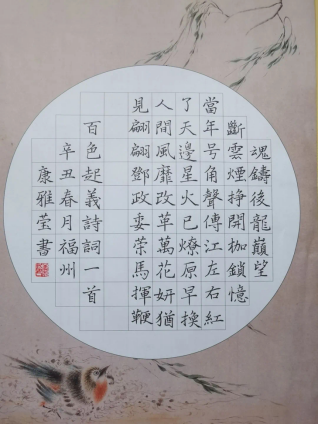 魂鑄後龍巔望
斷雲煙掙開枷鎖憶
當年号角聲傳江左右紅
了天邊星火已燎原早換
人間風靡改革萬花妍猶
見翩翩鄧政委榮馬揮鞭
百色起義詩詞一首
辛丑春月福州
康雅莹書